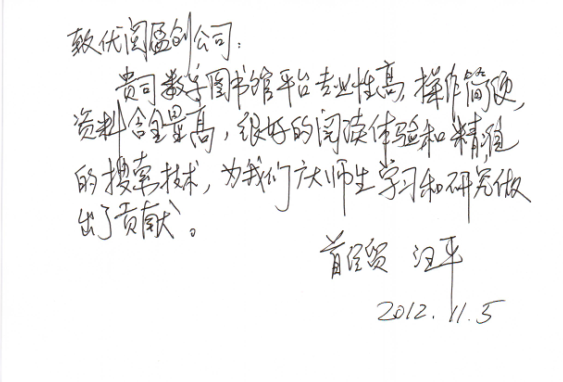 致优阅盈创公司:
贵司数字图书馆平台专业性高,操作简便,
资料含量高,很好的阅读体验和精准
的搜索技术,为我们广大师生学习和研究做
出了贡献。
首经贸 汪平
2012.11.5